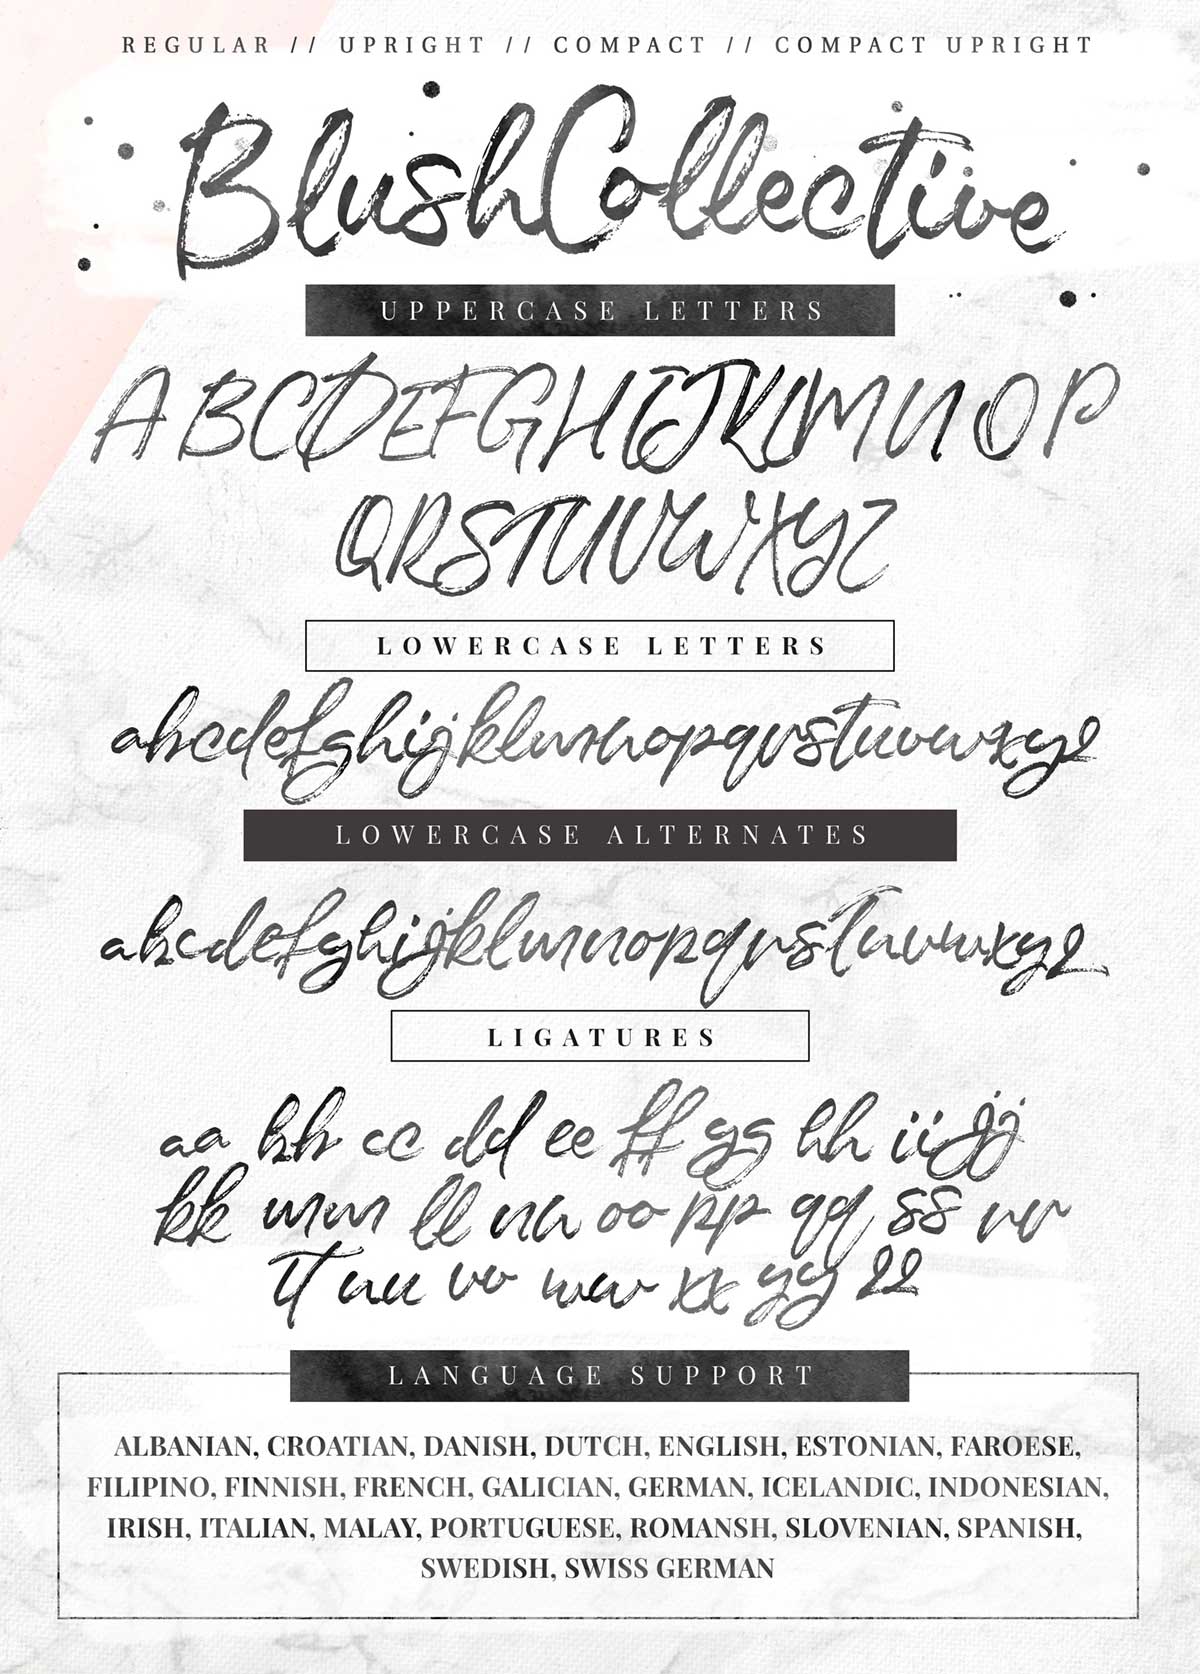 REGULAR // UPRIGHT // COMPACT // COMPACT UPRIGHT
BlushCollective
UPPERCASE LETTERS
ABCDEFGHIJKLMNOP
QRSTUVWXYZ
LOWERCASE LETTERS
abcdefghijklmnopqrstuvwxyz
LOWERCASE ALTERNATES
abcdefghijklmnopqrstuvwxyz
LIGATURES
aa bb cc dd ee ff gg hh ii jj
kk mm ll nn oo pp qq ss rr
tt uu vv ww xx yy zz
LANGUAGE SUPPORT
ALBANIAN, CROATIAN, DANISH, DUTCH, ENGLISH, ESTONIAN, FAROESE,
FILIPINO, FINNISH, FRENCH, GALICIAN, GERMAN, ICELANDIC, INDONESIAN,
IRISH, ITALIAN, MALAY, PORTUGUESE, ROMANSH, SLOVENIAN, SPANISH,
SWEDISH, SWISS GERMAN